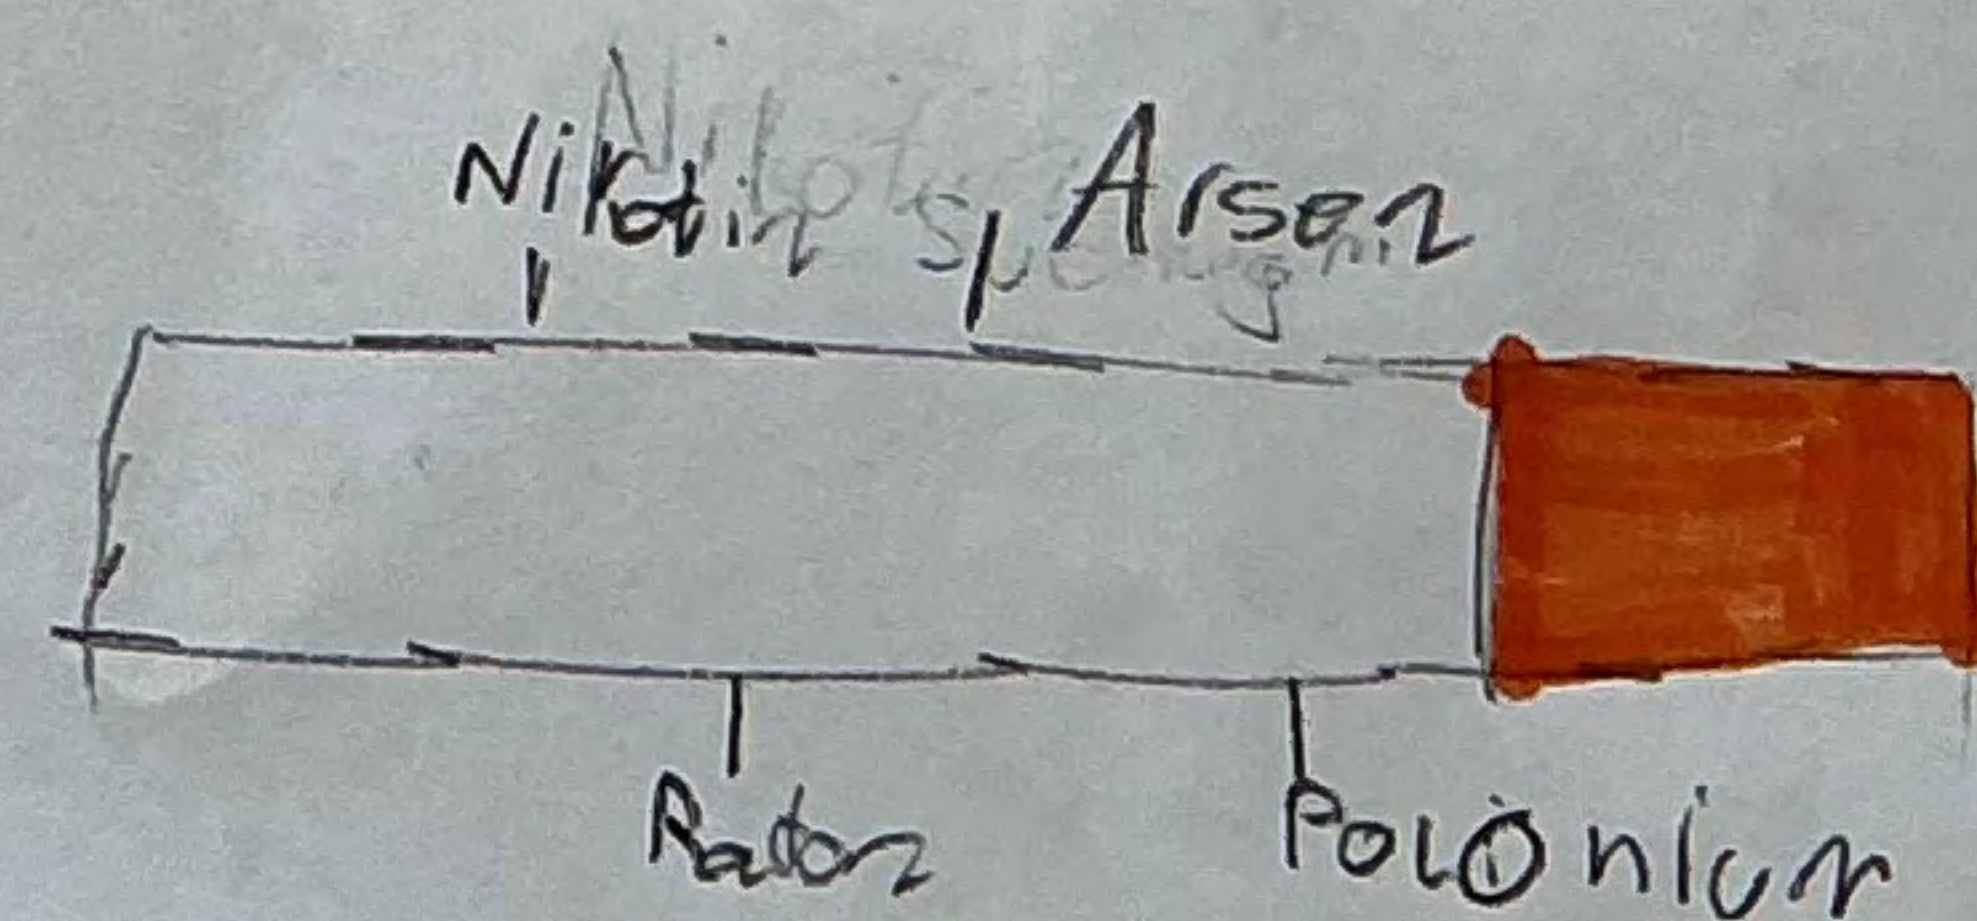 Nikotin Arsen
Radon Polonium